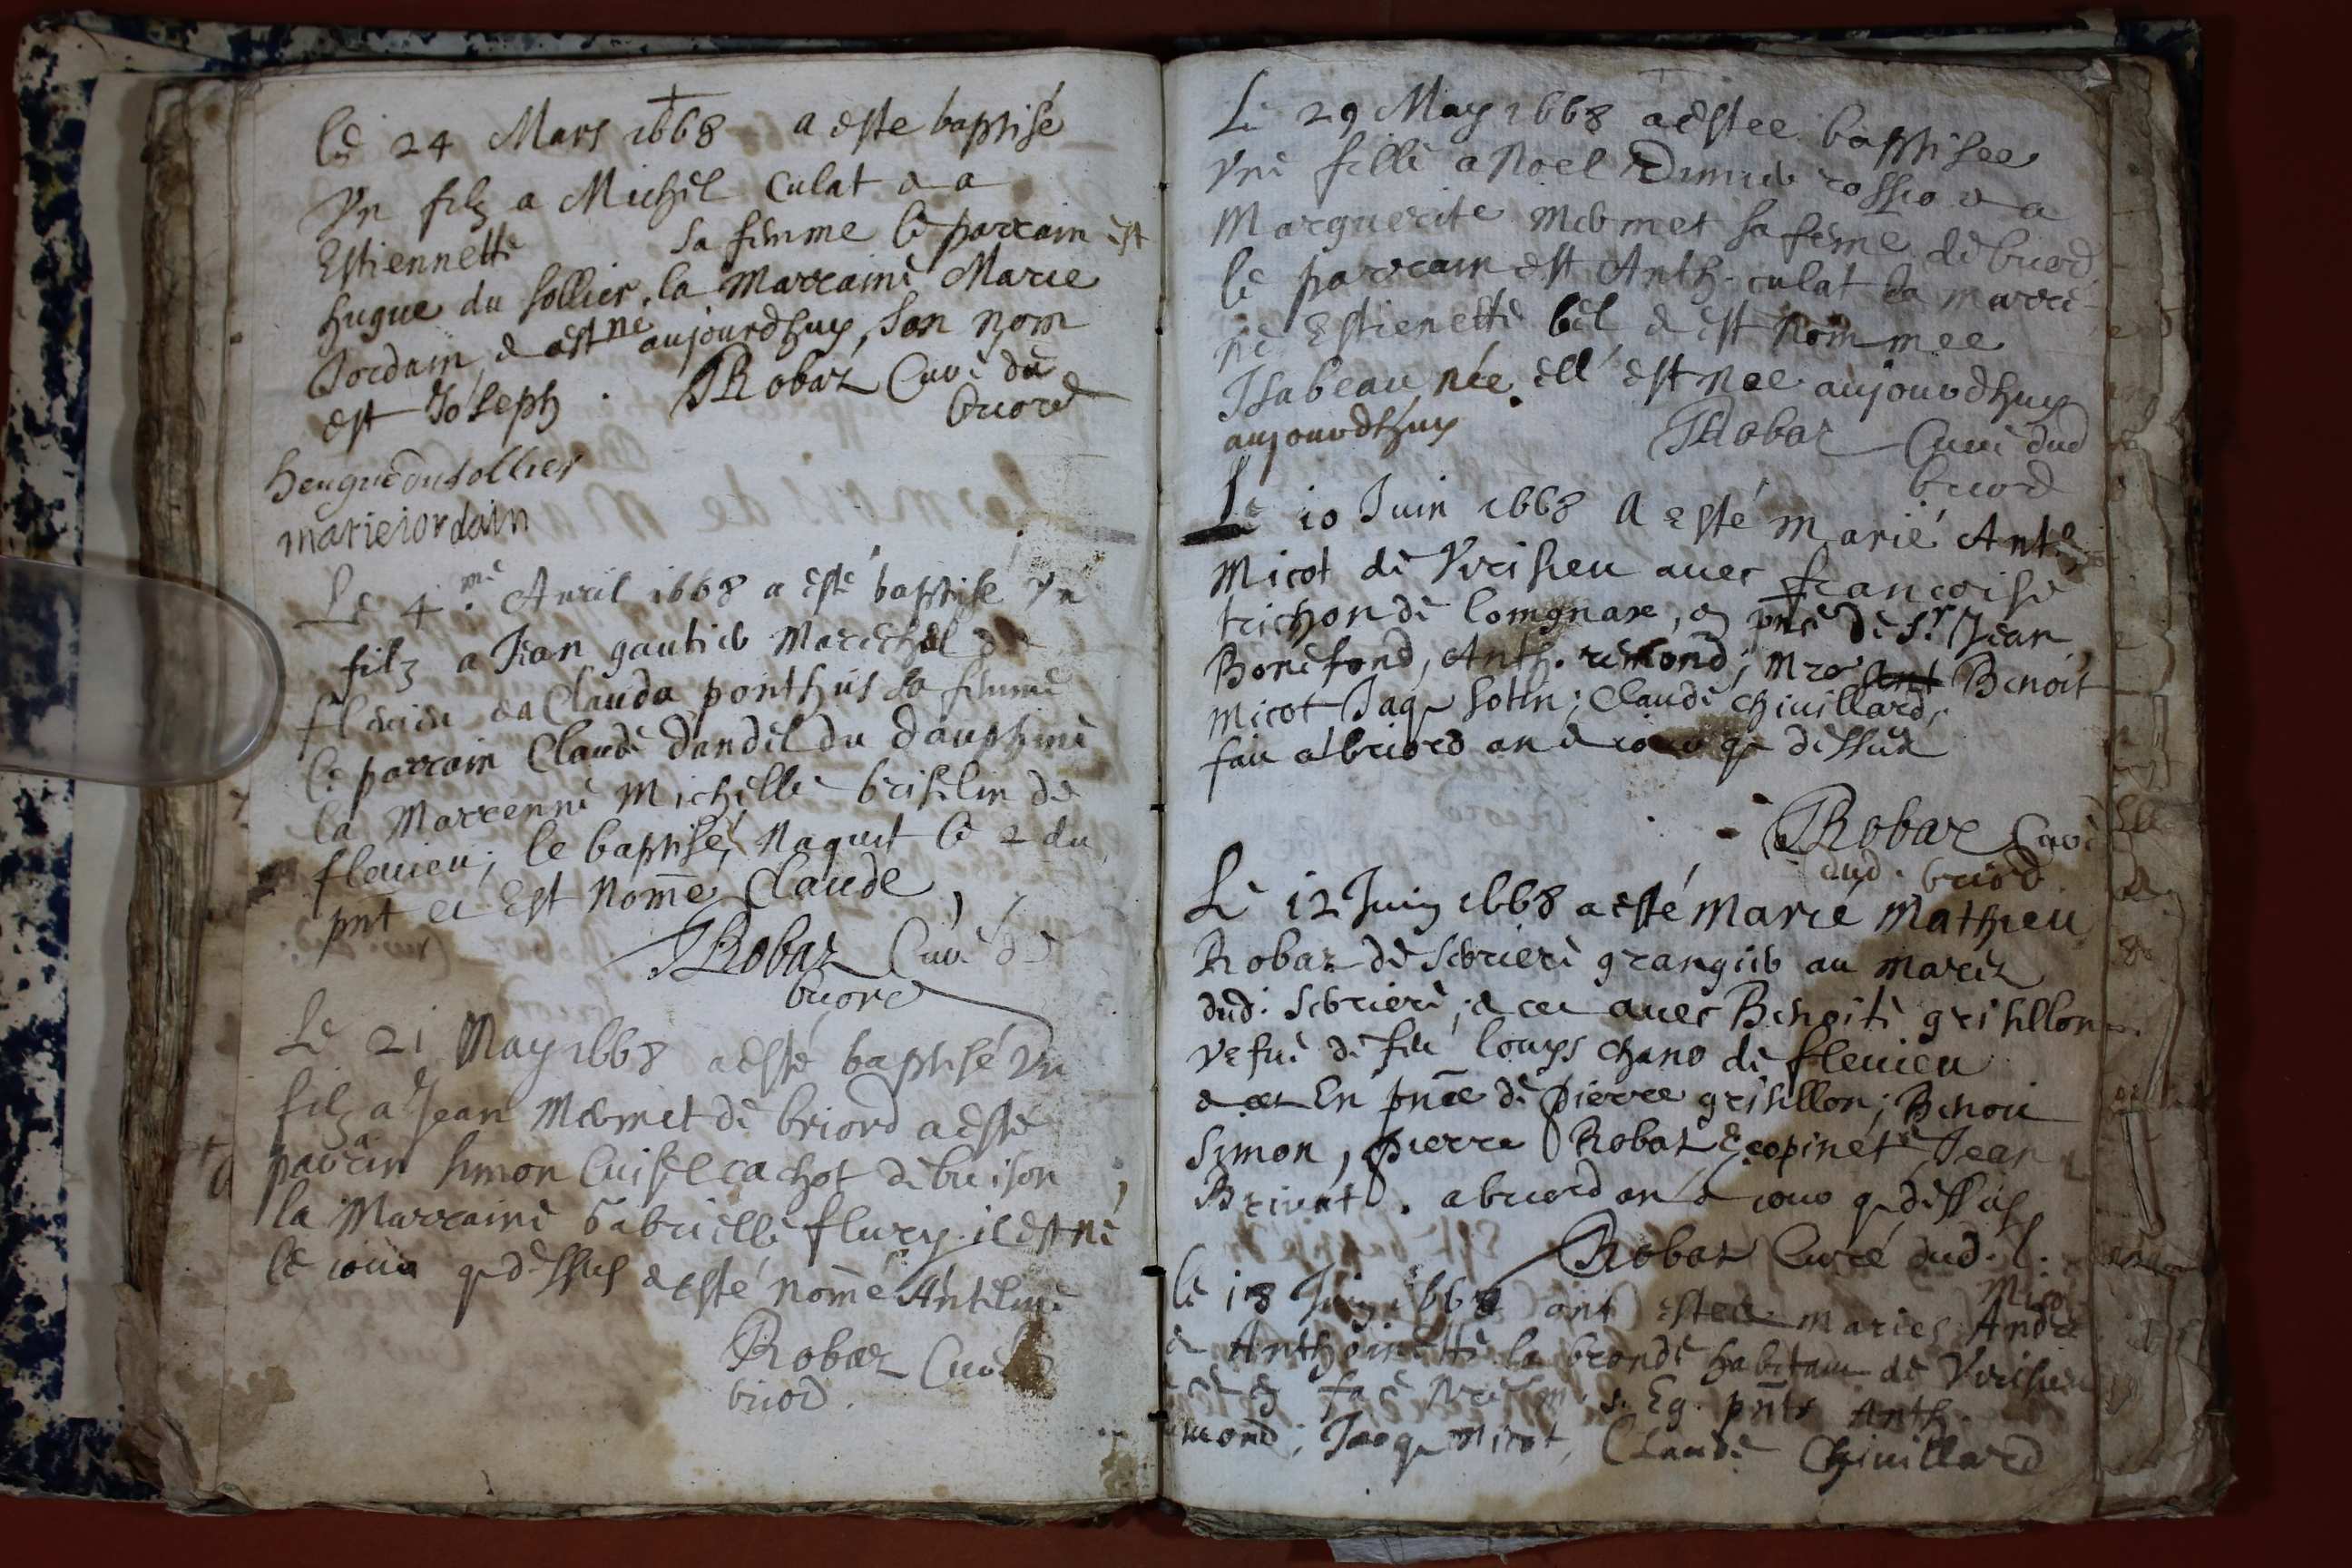 Le 24 Mars 1668 a este baptisé
Vn filz a Michel Culat & a
Estiennette sa femme le parrain est
hugue du sollier, la Marraine Marie
Jordain, & est né aujourdhuy, son nom
est Joseph. Robaz Curé de
briord
hengue du sollier
marie iordain
Le 4.me Avril 1668 a esté baptisé vn
filz a Jean gautier Marechal de
flevieu & a Clauda ponthus sa femme
le parrain Claude dandel du dauphiné
la Marrenne Michelle briselin de
flevieu; le baptisé naquit le 2 du
pnt et Est nommé Claude
Robaz Curé de
briord
Le 21 May 1668 a esté baptisé Vn
filz a Jean Mermet de briord a esté
parain simon Cuisel cachot de
la Marraine Gabrielle flury il est né
le iour q dessus & esté nommé Antelme
Robaz Curé
briord.
Le 29 May 1668 a estee baptisee
Vne fille a Noel & a
Marguerite Mermet sa feme de briord
le parrain est Anth. culat la marre-
ne Estienette bel & est Nommee
Isabeau née. ell' est nee aujourdhuy
aujourdhuy Robaz Curé dud
briord
Le 10 Juin 1668 A esté marié Anthe
Micot de Virisieu avec françoise
trichon de lomgnare, en pnce de Sr Jean
Bonefond, Anth. remond; Mre Ant Benoit
Micot Jaq sotin; Claude chivillard,
fait a briord an & iour q dessus
Robaz Curé
dud. briord
Le 12 Juin 1668 a esté Marié Mathieu
Robaz de Sebrieri grangier au Marez
dud. Sebrieri; & ce avec Benoite grisellon
vefue de feu Louys chano de flevieu
& ce En pnce de Pierre grisellon; Benoit
Simon, Pierre Robaz & copinet Jean
Brivat. a briord an & iour q dessus
Robaz Curé dud. l.
Mico
Le 18 Juin 1668 ont estee mariez André
& Anthoinette la bronde habitans de Virisieu
s. Eg. pnts Anth.
mond; Jaq Micot, Claude Chivillard